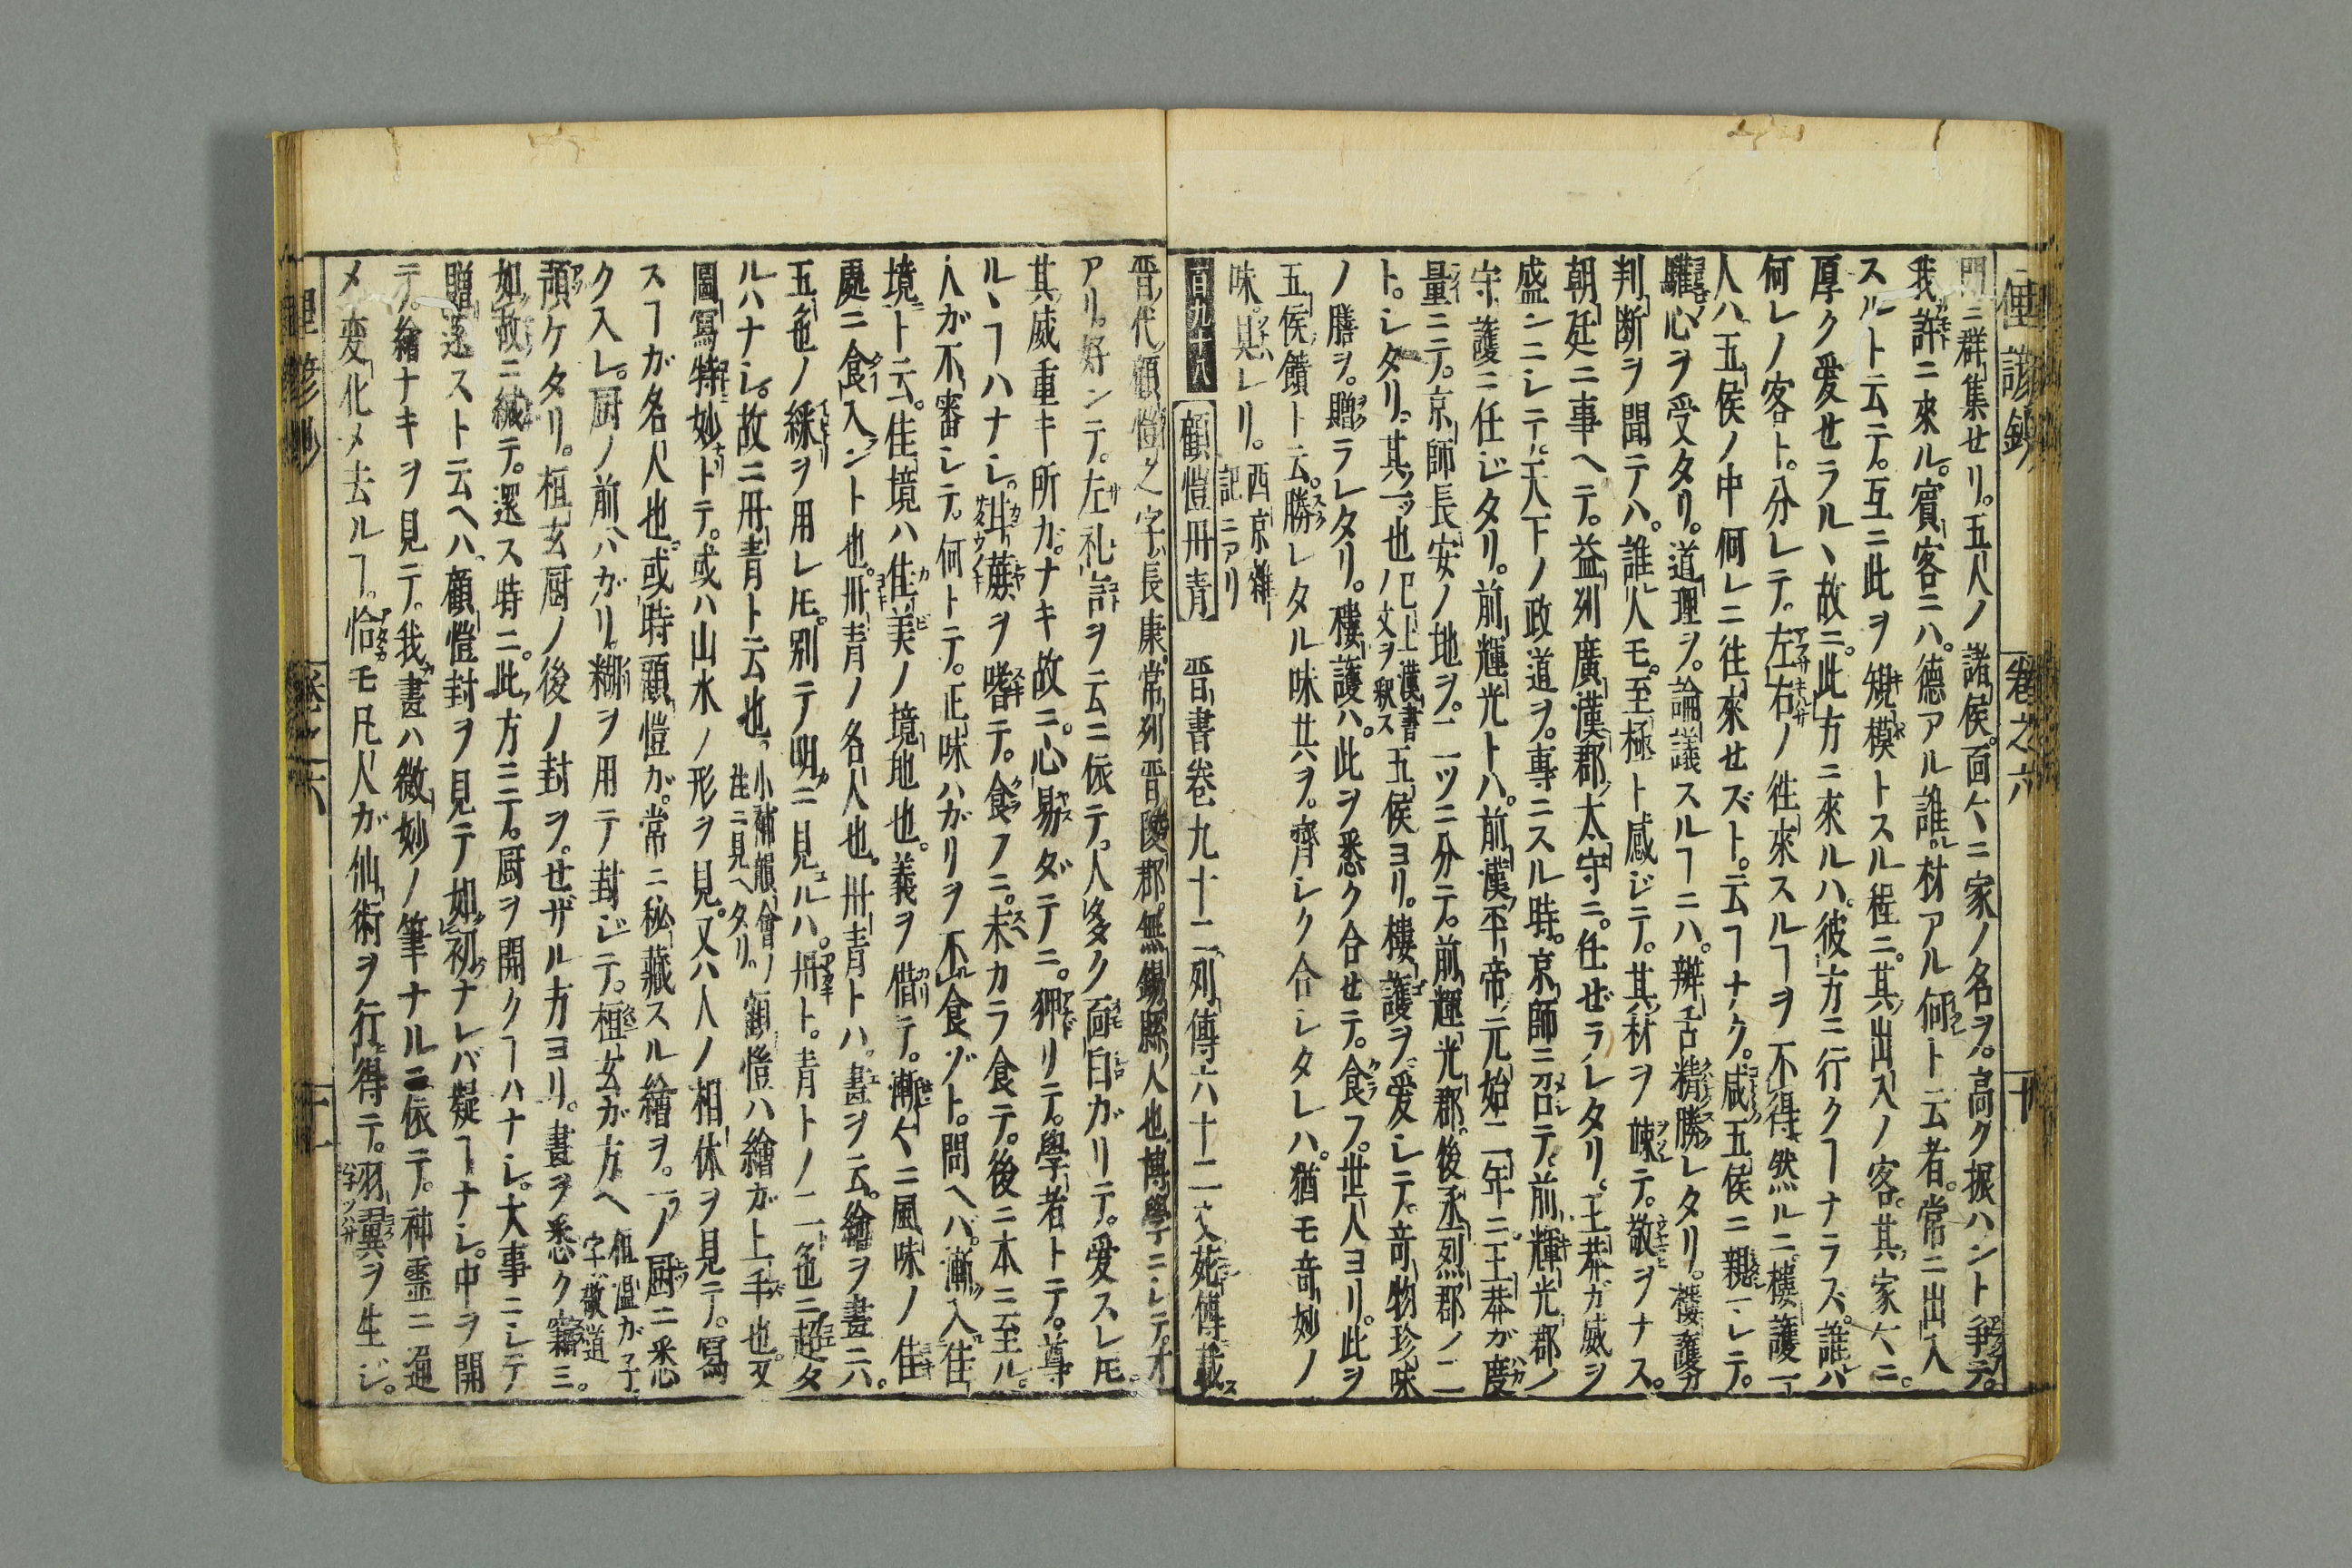 俚諺鈔 卷之六 十
門ニ群集セリ。五人ノ諸侯。面々ニ家ノ名ヲ。高ク振ハント爭テ。
我許ニ來ル。賓客ニハ。德アル誰。材アル何ト云者。常ニ出入
スルト云テ。互ニ此ヲ規模トスル程ニ。其出入ノ客。其家々ニ。
厚ク愛セラルヽ故ニ。此方ニ來ルハ。彼方ニ行クヿナラズ。誰ハ
何レノ客ト。分レテ。左右ノ徃來スルヿヲ不得然ルニ樓護一
人ハ五侯ノ中何レニ徃來セズト。云ヿナク。咸五侯ニ親ニレテ。
驩心ヲ受タリ。道理ヲ。論議スルヿニハ。辨舌精勝レタリ。樓護
判断ヲ聞テハ。誰人モ。至極ト感ジテ。其材ヲ竦テ。敬ヲナス。
朝廷ニ事ヘテ。益列廣漢郡太守ニ。任ゼラレタリ。王莽ガ威ヲ
盛ンニシテ。天下ノ政道ヲ。專ニスル時。京師ニ召テ。前輝光郡ノ
守護ニ任ジタリ。前輝光トハ。前漢平帝元始二年ニ。王莽ガ度
量ニテ。京師長安ノ地ヲ。二ツニ分テ。前輝光郡。後丞烈郡ノ二
ト。シタリ。其一也 已上漢書ノ文ヲ釈ス 五侯ヨリ。樓護ヲ。愛シテ。竒物珍味
ノ膳ヲ。贈ラレタリ。樓護ハ。此ヲ悉ク合セテ。食フ。世人ヨリ。此ヲ
五侯鯖ト云。勝レタル味共ヲ。齊シク合シタレハ。猶モ竒妙ノ
味。具レリ。 西京雜記ニアリ
百九十八 顧愷丹青 晋書卷九十二列傳六十二文苑傳載ス
晋代顧愷之字長康。常列晋陵郡。無錫縣人也。博學ニシテ。才
アリ。好ンテ。左礼言ヲ云ニ依テ。人多ク面白ガリテ。愛スレ𪜈。
其威重キ所ガ。ナキ故ニ。心易ダテニ。狎リテ。學者トテ。尊
ルヽヿハナシ。 蔗ヲ嗜テ。食フニ。末カラ食テ。後ニ本ニ至ル。
人ガ不審シテ。何トテ。正味ハガリヲ不食ゾト。問ヘバ。漸入佳
境ト云。佳境ハ佳美ノ境地也。義ヲ借テ。漸々ニ風味ノ佳
處ニ食入ント也。丹青ノ名人也。丹青トハ。畫ヲ云。繪ヲ畫ニハ。
五色ノ綵ヲ用レ𪜈。別テ明ニ見ルハ。丹ト。青トノ二色ニ超タ
ルハナシ。故ニ丹青ト云也。 小補韻會ノ註ニ見ヘタリ 顧愷ハ繪ガ上手也。又
圖寫特妙トテ。或ハ山水ノ形ヲ見。又ハ人ノ相体ヲ見テ。寫
スヿガ名人也。或時顧愷ガ。常ニ秘藏スル繪ヲ。一ノ厨ニ悉
ク入レ。厨ノ前ハガリ。糊ヲ用テ封ジテ。桓玄ガ方ヘ 桓温ガ子字ハ敬道
預ケタリ。桓玄厨ノ後ノ封ヲ。セザル方ヨリ。畫ヲ悉ク竊ミ。
如故ニ緘テ。還ス時ニ。此方ニテ。厨ヲ開クヿハナシ。大事ニシテ
贈還ストト云ヘハ。顧愷封ヲ見テ如初ナレバ疑ヿナシ。中ヲ開
テ。繪ナキヲ見テ。我畫ハ微妙ノ筆ナルニ依テ。神霊ニ通
メ変化メ去ルヿ。恰モ凡人ガ仙術ヲ行得テ。羽翼ヲ生ジ。
俚諺鈔 卷之六 十一